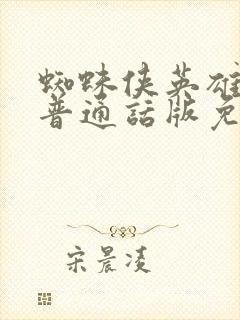 蜘蛛侠英雄
普通話版免
宋晨凌